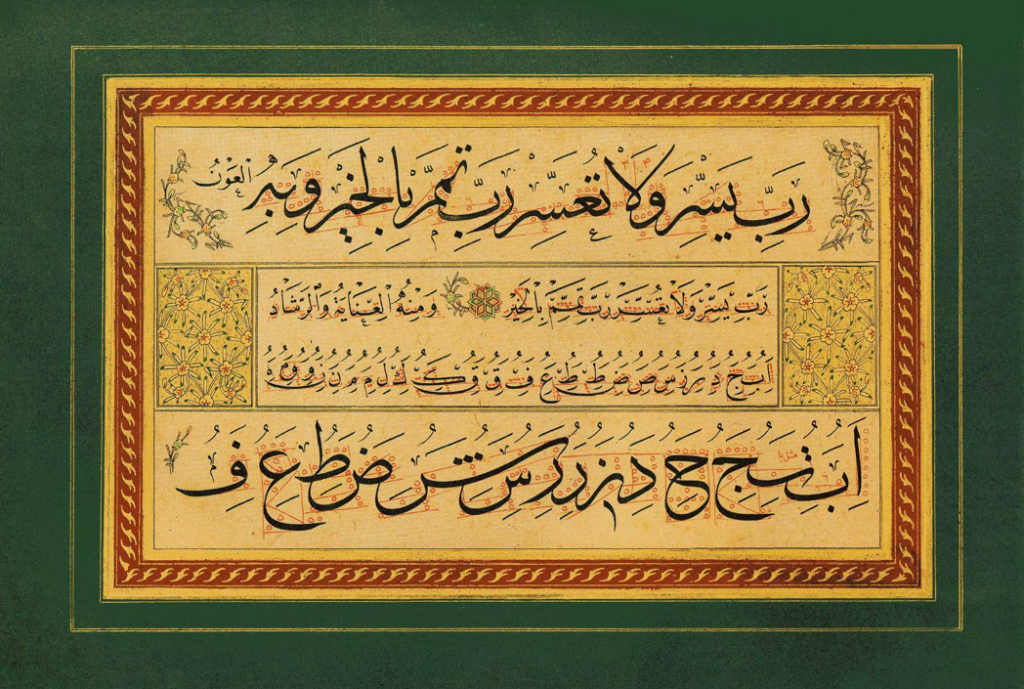 رَبِّ يَسِّرْ وَلَا تُعَسِّرْ رَبِّ تَمِّمْ بِالْخَيْرِ وَبِهِ الْعَوْنُ
رَبِّ يَسِّرْ وَلَا تُعَسِّرْ رَبِّ تَمِّمْ بِالْخَيْرِ وَمِنْهُ الْعِنَايَةُ وَالرَّشَادُ
ا ب ج د ر ز س ص ض ط ط ع ف ق ق ك ك ل م م م ن
ا ب ت ج ح د ز ر ر س ش ض ط ع ف